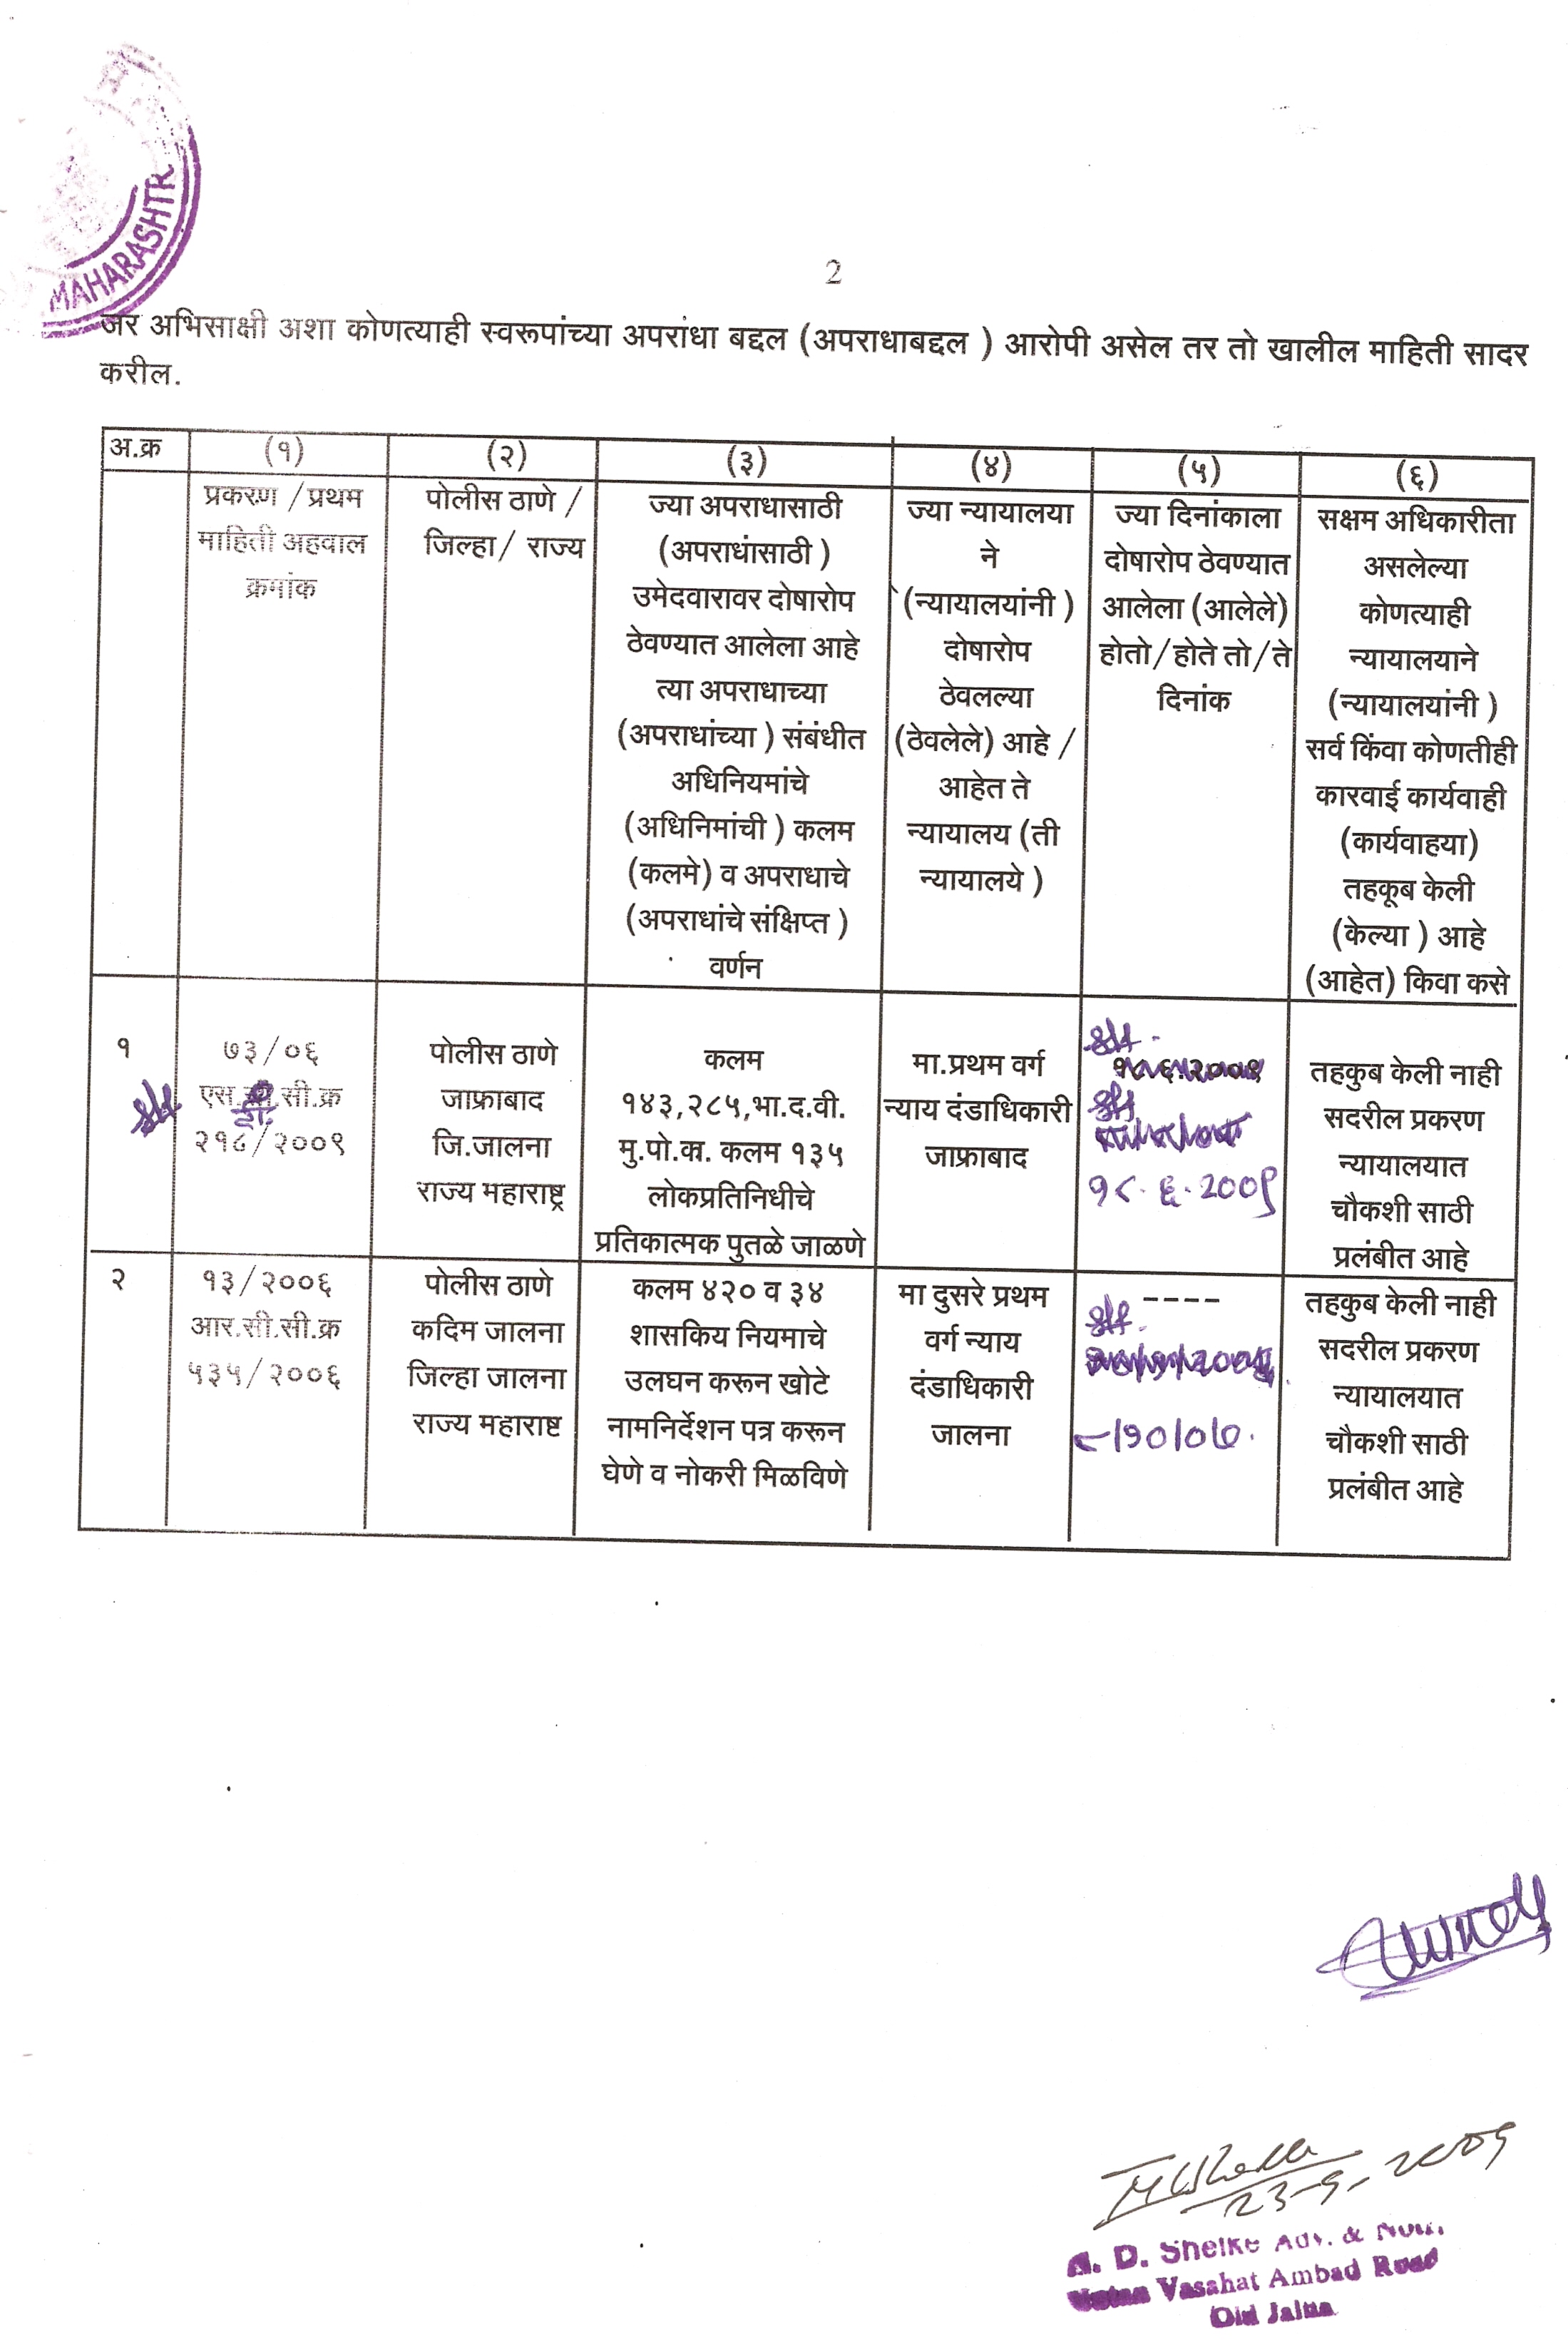 MAHARASHTR
2
जर अभिसाक्षी अशा कोणत्याही स्वरूपांच्या अपरांधा बद्दल (अपराधाबद्दल ) आरोपी असेल तर तो खालील माहिती सादर
करील.
अ.क्र (१) (२) (३) (४) (५) (६)
प्रकरण /प्रथम
माहिती अहवाल
क्रमांक
पोलीस ठाणे /
जिल्हा/ राज्य
ज्या अपराधासाठी
(अपराधांसाठी )
उमेदवारावर दोषारोप
ठेवण्यात आलेला आहे
त्या अपराधाच्या
(अपराधांच्या ) संबंधीत
अधिनियमांचे
(अधिनिमांची ) कलम
(कलमे) व अपराधाचे
(अपराधांचे संक्षिप्त )
वर्णन
ज्या न्यायालया
ने
(न्यायालयांनी )
दोषारोप
ठेवलल्या
(ठेवलेले) आहे /
आहेत ते
न्यायालय (ती
न्यायालये )
ज्या दिनांकाला
दोषारोप ठेवण्यात
आलेला (आलेले)
होतो/होते तो/ते
दिनांक
सक्षम अधिकारीता
असलेल्या
कोणत्याही
न्यायालयाने
(न्यायालयांनी )
सर्व किंवा कोणतीही
कारवाई कार्यवाही
(कार्यवाहया)
तहकूब केली
(केल्या ) आहे
(आहेत) किवा कसे
१
७३/०६
एस.सी.क्र
२१८/२००९
पोलीस ठाणे
जाफ्राबाद
जि.जालना
राज्य महाराष्ट्र
कलम
१४३,२८५,भा.द.वी.
मु.पो.क्ा. कलम १३५
लोकप्रतिनिधीचे
प्रतिकात्मक पुतळे जाळणे
मा.प्रथम वर्ग
न्याय दंडाधिकारी
जाफ्राबाद
१८.६.२००९
१८.६.२००९
तहकुब केली नाही
सदरील प्रकरण
न्यायालयात
चौकशी साठी
प्रलंबीत आहे
२
१३/२००६
आर.सी.सी.क्र
५३५/२००६
पोलीस ठाणे
कदिम जालना
जिल्हा जालना
राज्य महाराष्ट
कलम ४२० व ३४
शासकिय नियमाचे
उलघन करून खोटे
नामनिर्देशन पत्र करून
घेणे व नोकरी मिळविणे
मा दुसरे प्रथम
वर्ग न्याय
दंडाधिकारी
जालना
----
८/१०/०७.
तहकुब केली नाही
सदरील प्रकरण
न्यायालयात
चौकशी साठी
प्रलंबीत आहे
23-9-2009
A. D. Shelke Adv. &
Vasahat Ambad Road
Old Jalna